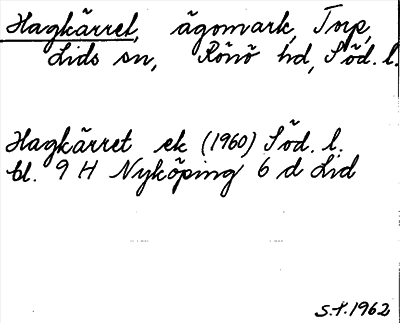 Hagkärret, ägomark, Torp,
Lids sn, Rönö hd, Söd. l.
Hagkärret ek (1960) Söd. l.
bl. 9 H Nyköping 6 d Lid
S.S. 1962